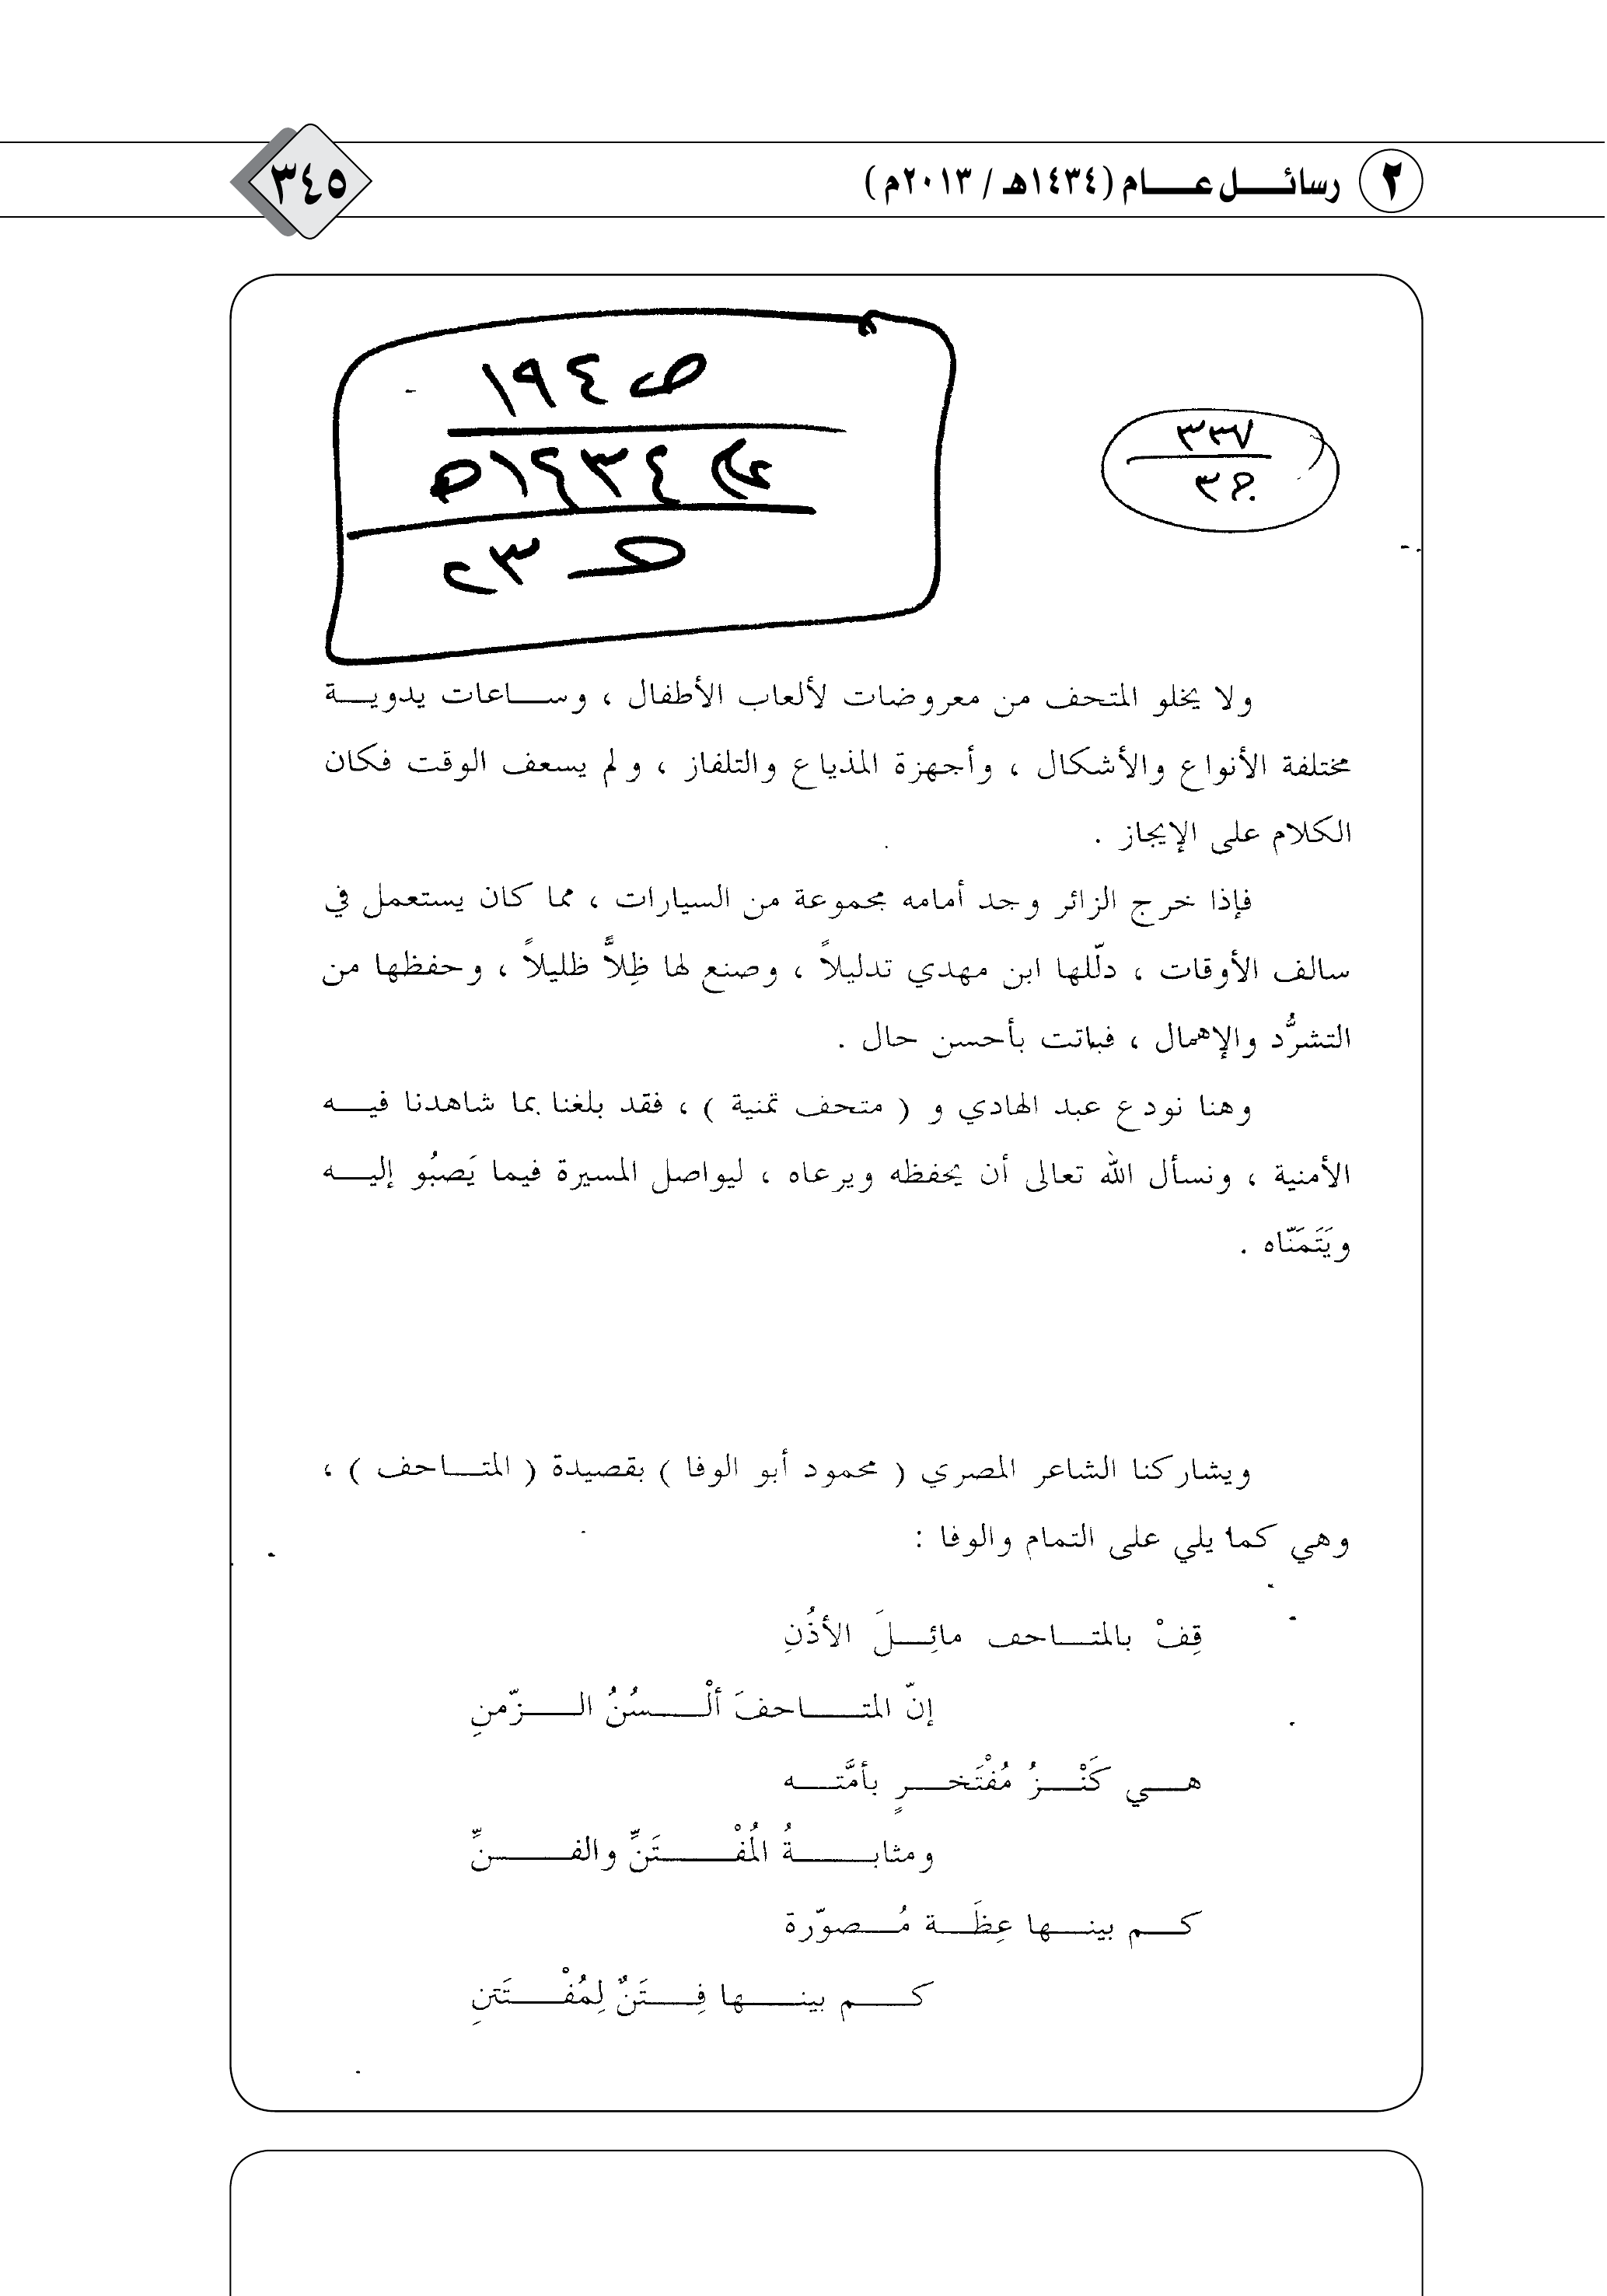 ٢ رسائل عام (١٤٣٤هـ / ٢٠١٣م)
٣٤٥
ص ١٩٤
١٤٣٤
٣٣٧
ج ٣
ولا يخلو المتحف من معروضات لألعاب الأطفال ، وساعات يدوية
مختلفة الأنواع والأشكال ، وأجهزة المذياع والتلفاز ، ولم يسعف الوقت فكان
الكلام على الإيجاز .
فإذا خرج الزائر وجد أمامه مجموعة من السيارات ، مما كان يستعمل في
سالف الأوقات ، دلّلها ابن مهدي تدليلاً ، وصنع لها ظِلاًّ ظليلاً ، وحفظها من
التشرُّد والإهمال ، فباتت بأحسن حال .
وهنا نودع عبد الهادي و ( متحف تمنية ) ، فقد بلغنا بما شاهدنا فيه
الأمنية ، ونسأل الله تعالى أن يحفظه ويرعاه ، ليواصل المسيرة فيما يَصبُو إليه
ويَتَمَنّاه .
ويشاركنا الشاعر المصري ( محمود أبو الوفا ) بقصيدة ( المتاحف ) ،
وهي كما يلي على التمام والوفا :
قِفْ بالمتاحف مائِلَ الأذُنِ
إنّ المتاحفَ ألْسُنُ الزّمنِ
هي كَنْزُ مُفْتَخرٍ بأمَّته
ومثابةُ المُفْتَنِّ والفنِّ
كم بينها عِظَة مُصوّرة
كم بينها فِتَنٌ لِمُفْتَتنِ